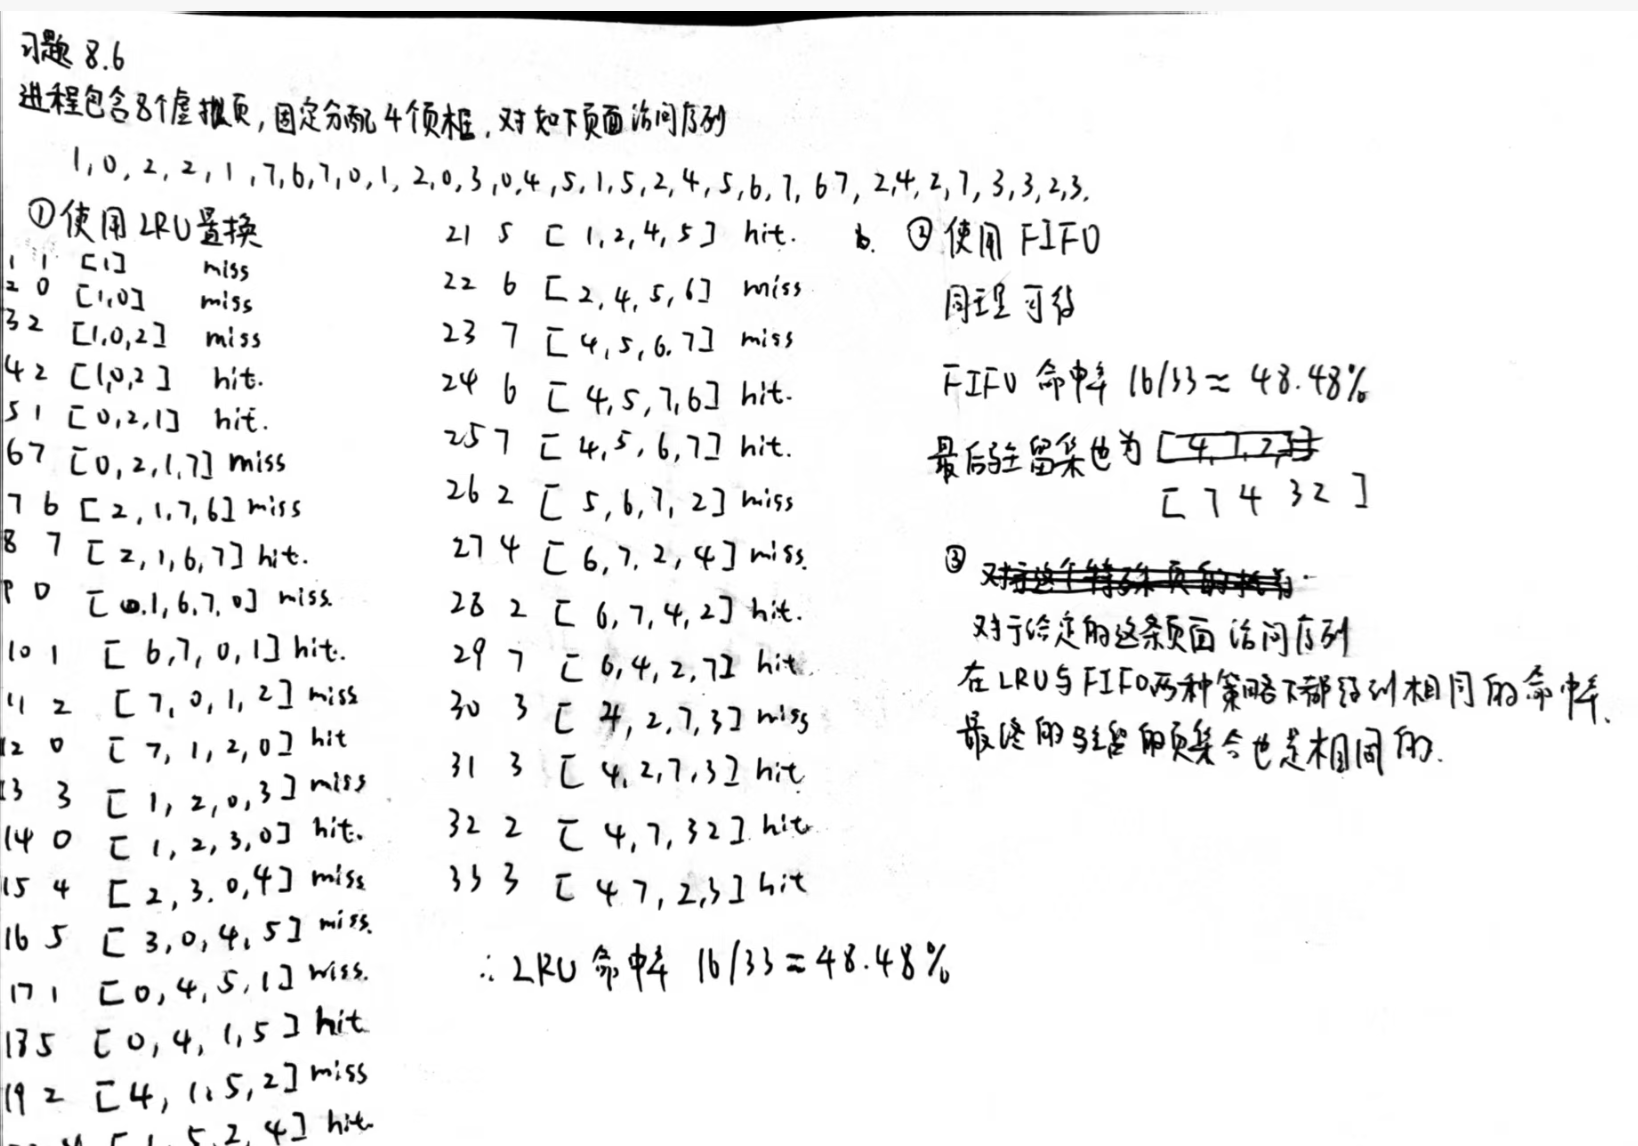 习题 8.6
进程包含8个虚拟页,固定分配4个页框,对如下页面访问序列
1,0,2,2,1,7,6,7,0,1,2,0,3,0,4,5,1,5,2,4,5,6,7,67,2,4,2,7,3,3,2,3.
①使用LRU置换
1 1 [1] miss
2 0 [1,0] miss
3 2 [1,0,2] miss
4 2 [1,0,2] hit.
5 1 [0,2,1] hit.
6 7 [0,2,1,7] miss
7 6 [2,1,7,6] miss
8 7 [2,1,6,7] hit.
9 0 [1,6,7,0] miss.
10 1 [6,7,0,1] hit.
11 2 [7,0,1,2] miss
12 0 [7,1,2,0] hit
13 3 [1,2,0,3] miss
14 0 [1,2,3,0] hit.
15 4 [2,3.0,4] miss
16 5 [3,0,4,5] miss.
17 1 [0,4,5,1] miss.
18 5 [0,4,1,5] hit
19 2 [4,1,5,2] miss
[1,5,2,4] hit.
21 5 [1,2,4,5] hit.
22 6 [2,4,5,6] miss
23 7 [4,5,6.7] miss
24 6 [4,5,7,6] hit.
25 7 [4,5,6,7] hit.
26 2 [5,6,7,2] miss
27 4 [6,7,2,4] miss.
28 2 [6,7,4,2] hit.
29 7 [6,4,2,7] hit
30 3 [4,2,7,3] miss
31 3 [4,2,7,3] hit
32 2 [4,7,32] hit
33 3 [47,2,3] hit
∴LRU命中率 16/33≈48.48%
b. ②使用FIFO
同理可得
FIFO命中率 16/33≈48.48%
最后驻留集也为 [4,7,2,3]
[7 4 3 2]
③
对于给定的这条页面访问序列
在LRU与FIFO两种策略下都得到相同的命中率.
最终的驻留的页集合也是相同的.